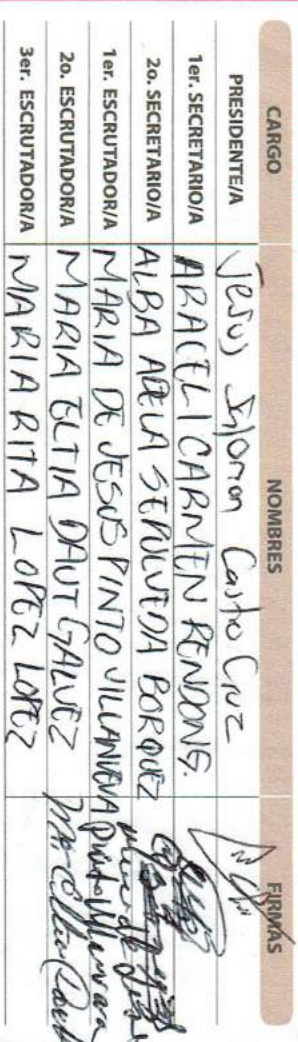 CARGO NOMBRES FIRMAS
PRESIDENTE/A Jesus Castro Cruz
1er. SECRETARIO/A ARACELI CARMEN RENDON G.
2o. SECRETARIO/A ALBA ADELA SEPULVEDA BORQUEZ
1er. ESCRUTADOR/A MARIA DE JESUS PINTO VILLANUEVA
2o. ESCRUTADOR/A MARIA DAUT GALVEZ
3er. ESCRUTADOR/A MARIA RITA LOPEZ LOPEZ